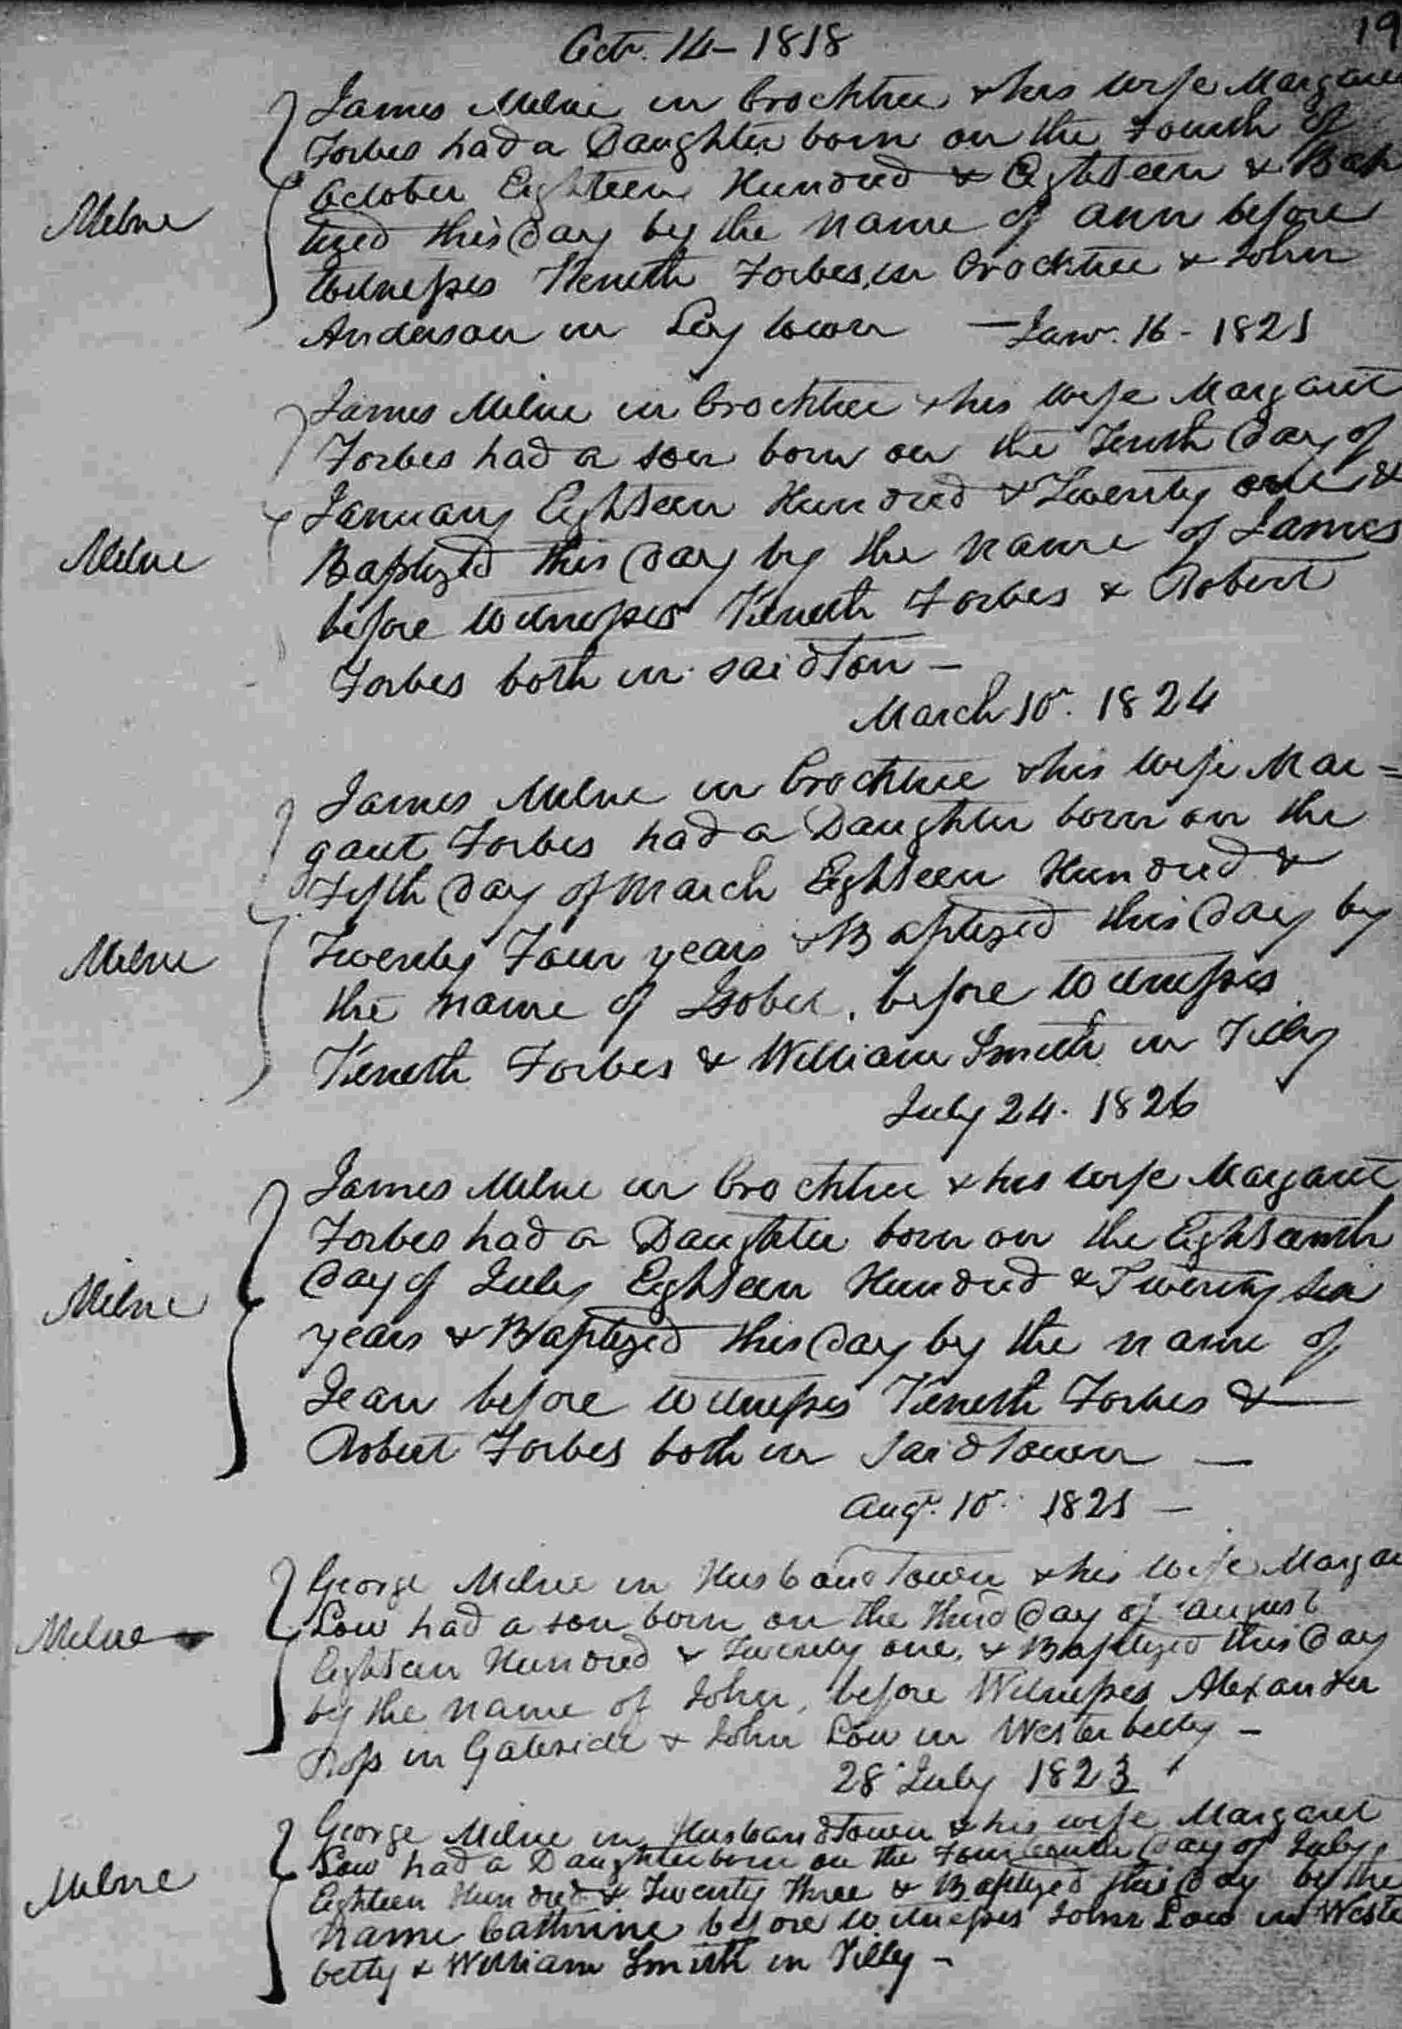 Octr. 14 - 1818
19
James Milne in Crocktree & his wife Margaret
Forbes had a Daughter born on the Fourth of
Milne
October Eighteen Hundred & Eighteen & Bap
tized this Day by the name of Ann before
Witnesses Keneth Forbes in Crocktree & John
Anderson in Ley town
— Janr. 16 - 1821
James Milne in Crocktree & his wife Margaret
Forbes had a son born on the Tenth Day of
January Eighteen Hundred & Twenty one &
Milne
Baptized this Day by the name of James
before Witnesses Keneth Forbes & Robert
Forbes both in said Ton —
March 10. 1824
James Milne in Crocktree & his wife Mar =
garet Forbes had a Daughter born on the
Fifth Day of March Eighteen Hundred &
Milne
Twenty Four years & Baptized this Day by
the name of Isobel, before Witnesses
Keneth Forbes & William Smith in Tilly
July 24. 1826
James Milne in Crocktree & his wife Margaret
Forbes had a Daughter born on the Eighteenth
Milne
Day of July Eighteen Hundred & Twenty Six
years & Baptized this Day by the name of
Jean before Witnesses Keneth Forbes &
Robert Forbes both in said Town —
Augt. 10. 1821 —
George Milne in Husbandtown & his wife Margaret
Low had a son born on the Third Day of August
Milne
Eighteen Hundred & Twenty one, & Baptized this Day
by the name of John, before Witnesses Alexander
Ross in Gateside & John Low in Westerbelty —
28 July 1823
George Milne in Husbandtown & his wife Margaret
Low had a Daughter born on the Fourteenth Day of July
Milne
Eighteen Hundred & Twenty Three & Baptized this Day by the
name Cathrine before Witnesses John Low in Weste
betty & William Smith in Tilly —